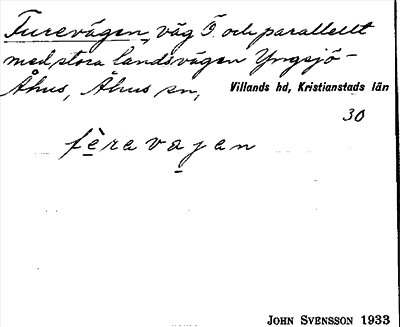 Furevägen, väg Ö. och parallellt
med stora landsvägen Yngsjö-
Åhus, Åhus sn, Villands hd, Kristianstads län
30
fèravajan
JOHN SVENSSON 1933